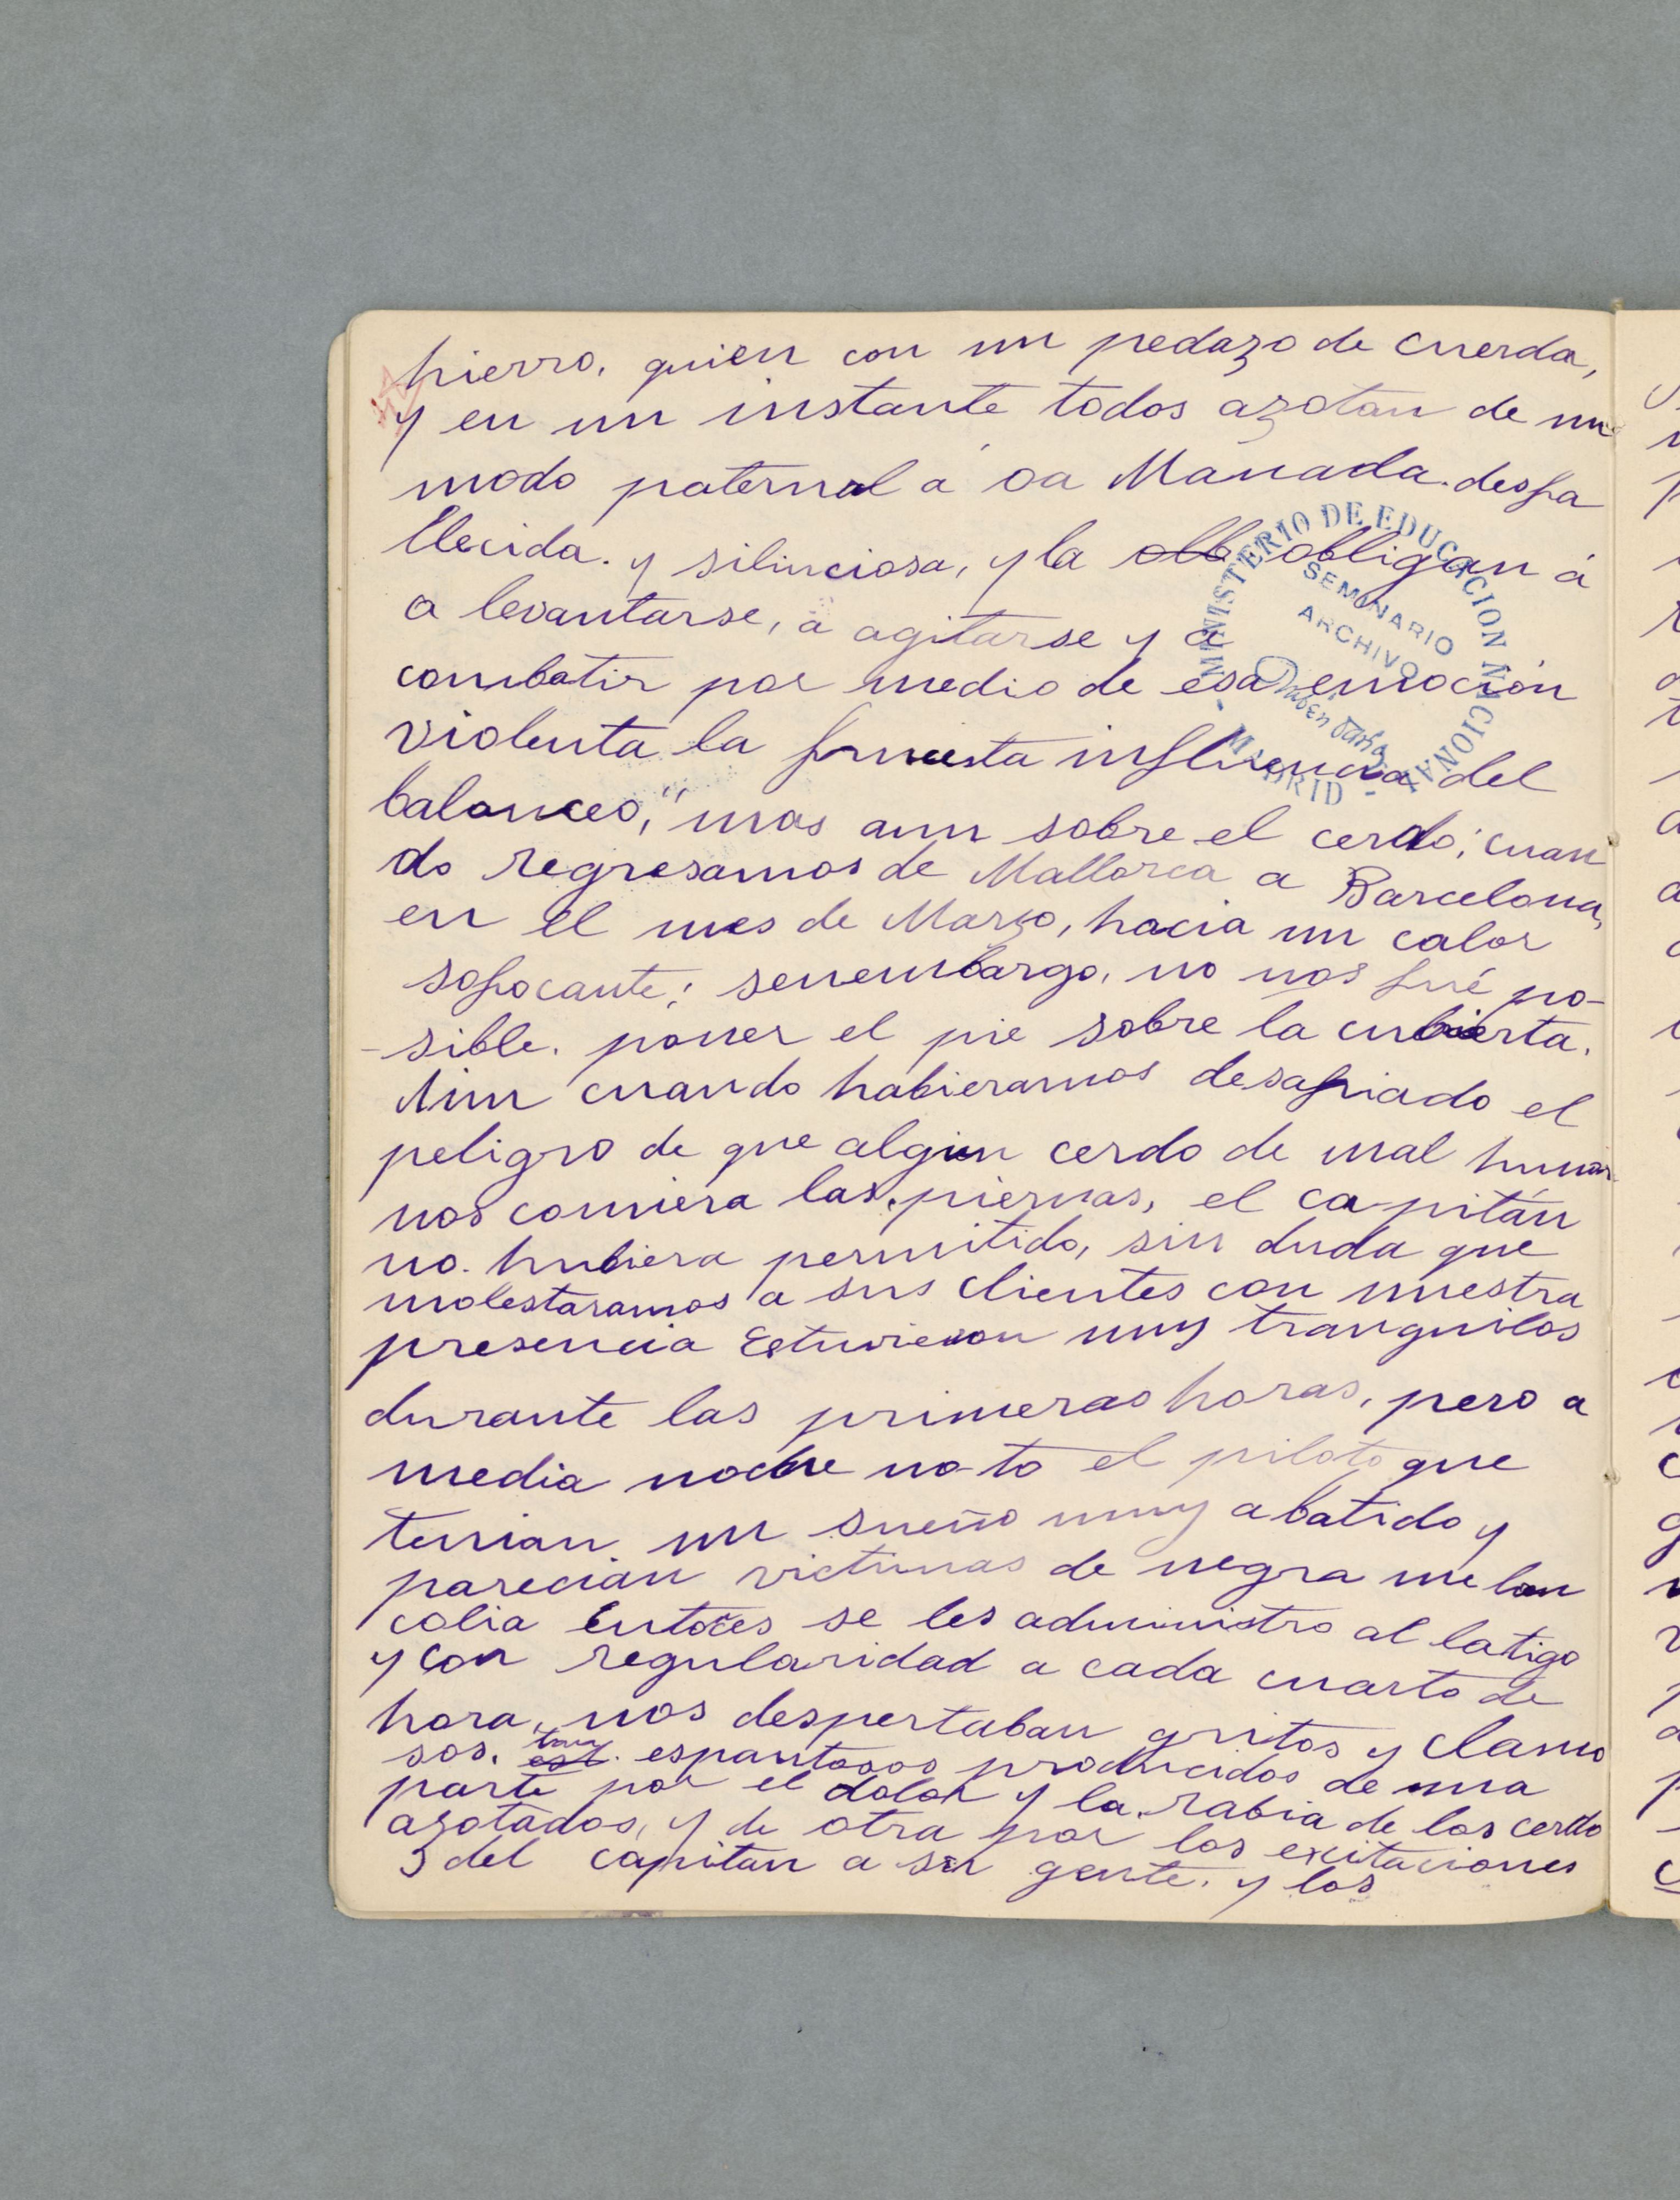 hierro, quien con un pedazo de cuerda,
y en un instante todos azotan de un
modo paternal a oa Manada. desfa
llecida. y silinciosa, y la olb obligan á
a levantarse, a agitarse y a
combatir por medio de esa emoción
violenta la funesta influencia del
balanceo," mas aun sobre el cerdo; cuan
do regresamos de Mallorca a Barcelona,
en el mes de Marzo, hacia un calor
sofocante; senembargo, no nos fué po-
-sible. poner el pie sobre la cubierta.
Aun cuando habieramos desafiado el
peligro de que algun cerdo de mal humor
nos comiera las piernas, el capitán
no. hubiera permitido, sin duda que
molestaramos a sus clientes con nuestra
presencia Estuvieron muy tranquilos
durante las primeras horas, pero a
media noche no-to el piloto que
tenian un sueño muy abatido y
parecian victimas de negra melan
colia Entoces se les administro al latigo
y con regularidad a cada cuarto de
hora, nos despertaban gritos y clamo
sos. est. tan espantosos producidos de una
parte por el dolor y la rabia de los cerdo
azotados, y de otra por los exitaciones
del capitan a su gente. y los
MINISTERIO DE EDUCACION NACIONAL
SEMINARIO
ARCHIVO
Rubén Darío
- MADRID -